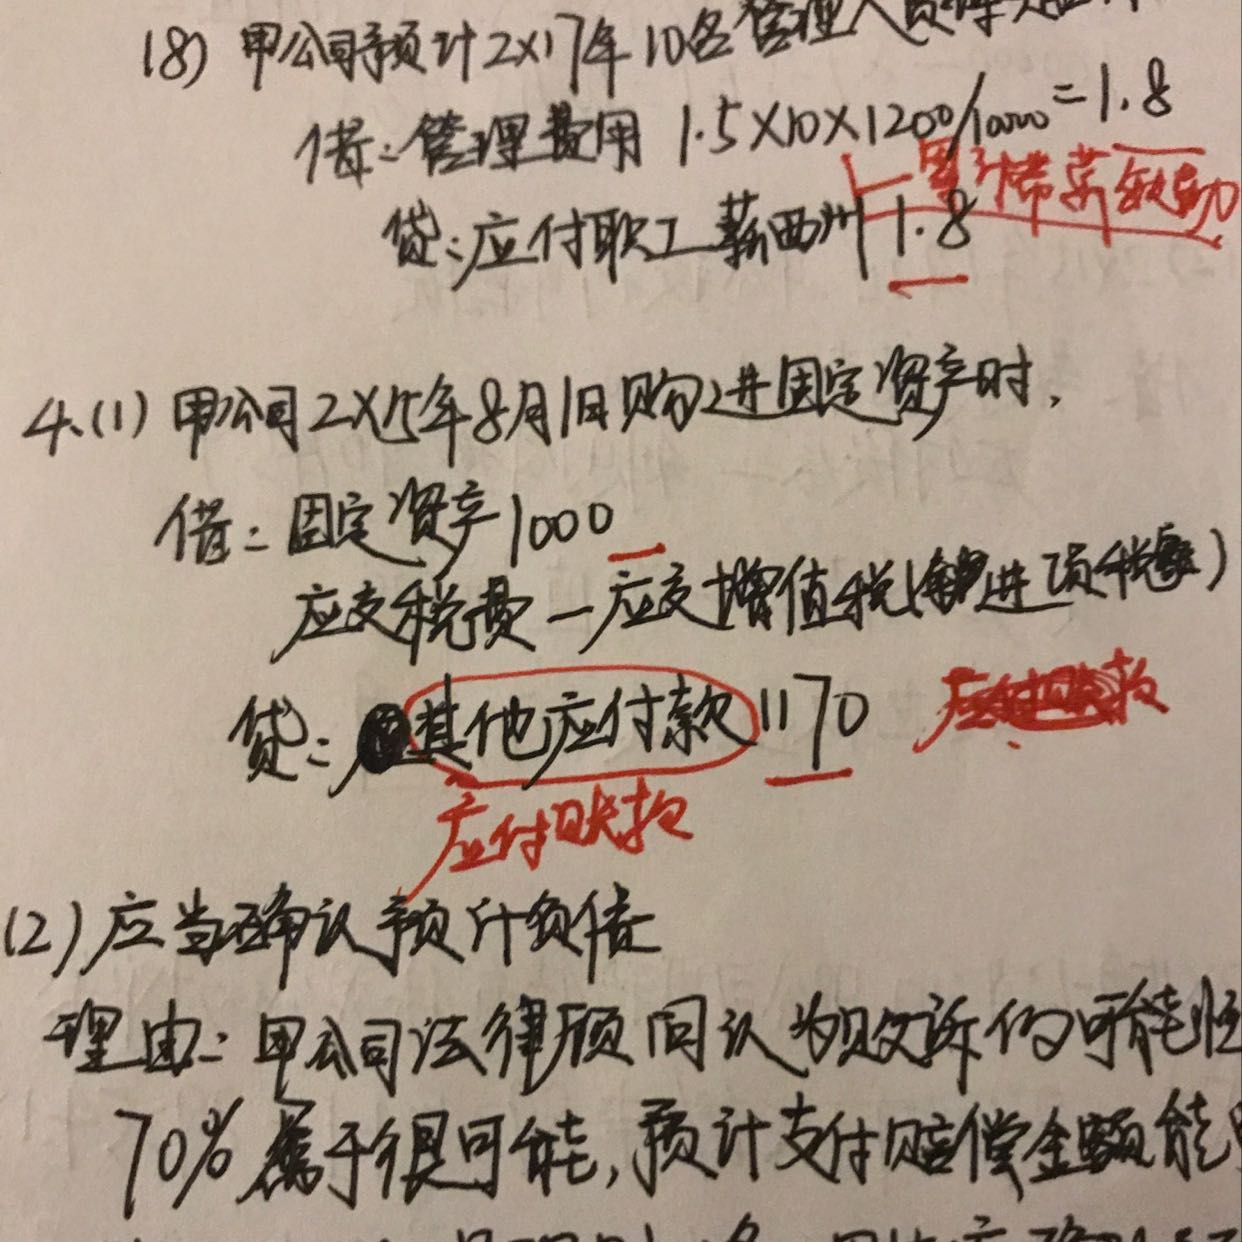 (8) 甲公司预计2×17年10名管理人员
借:管理费用 1.5×10×1200/10000=1.8
贷:应付职工薪酬 1.8
—累计带薪缺勤
4.(1) 甲公司2×15年8月1日购进固定资产时,
借:固定资产1000
应交税费—应交增值税(进项税额)
贷:其他应付款1170
应付账款
(2)应当确认预计负债
理由:甲公司法律顾问认为败诉的可能性
70%属于很可能,预计支付赔偿金额能